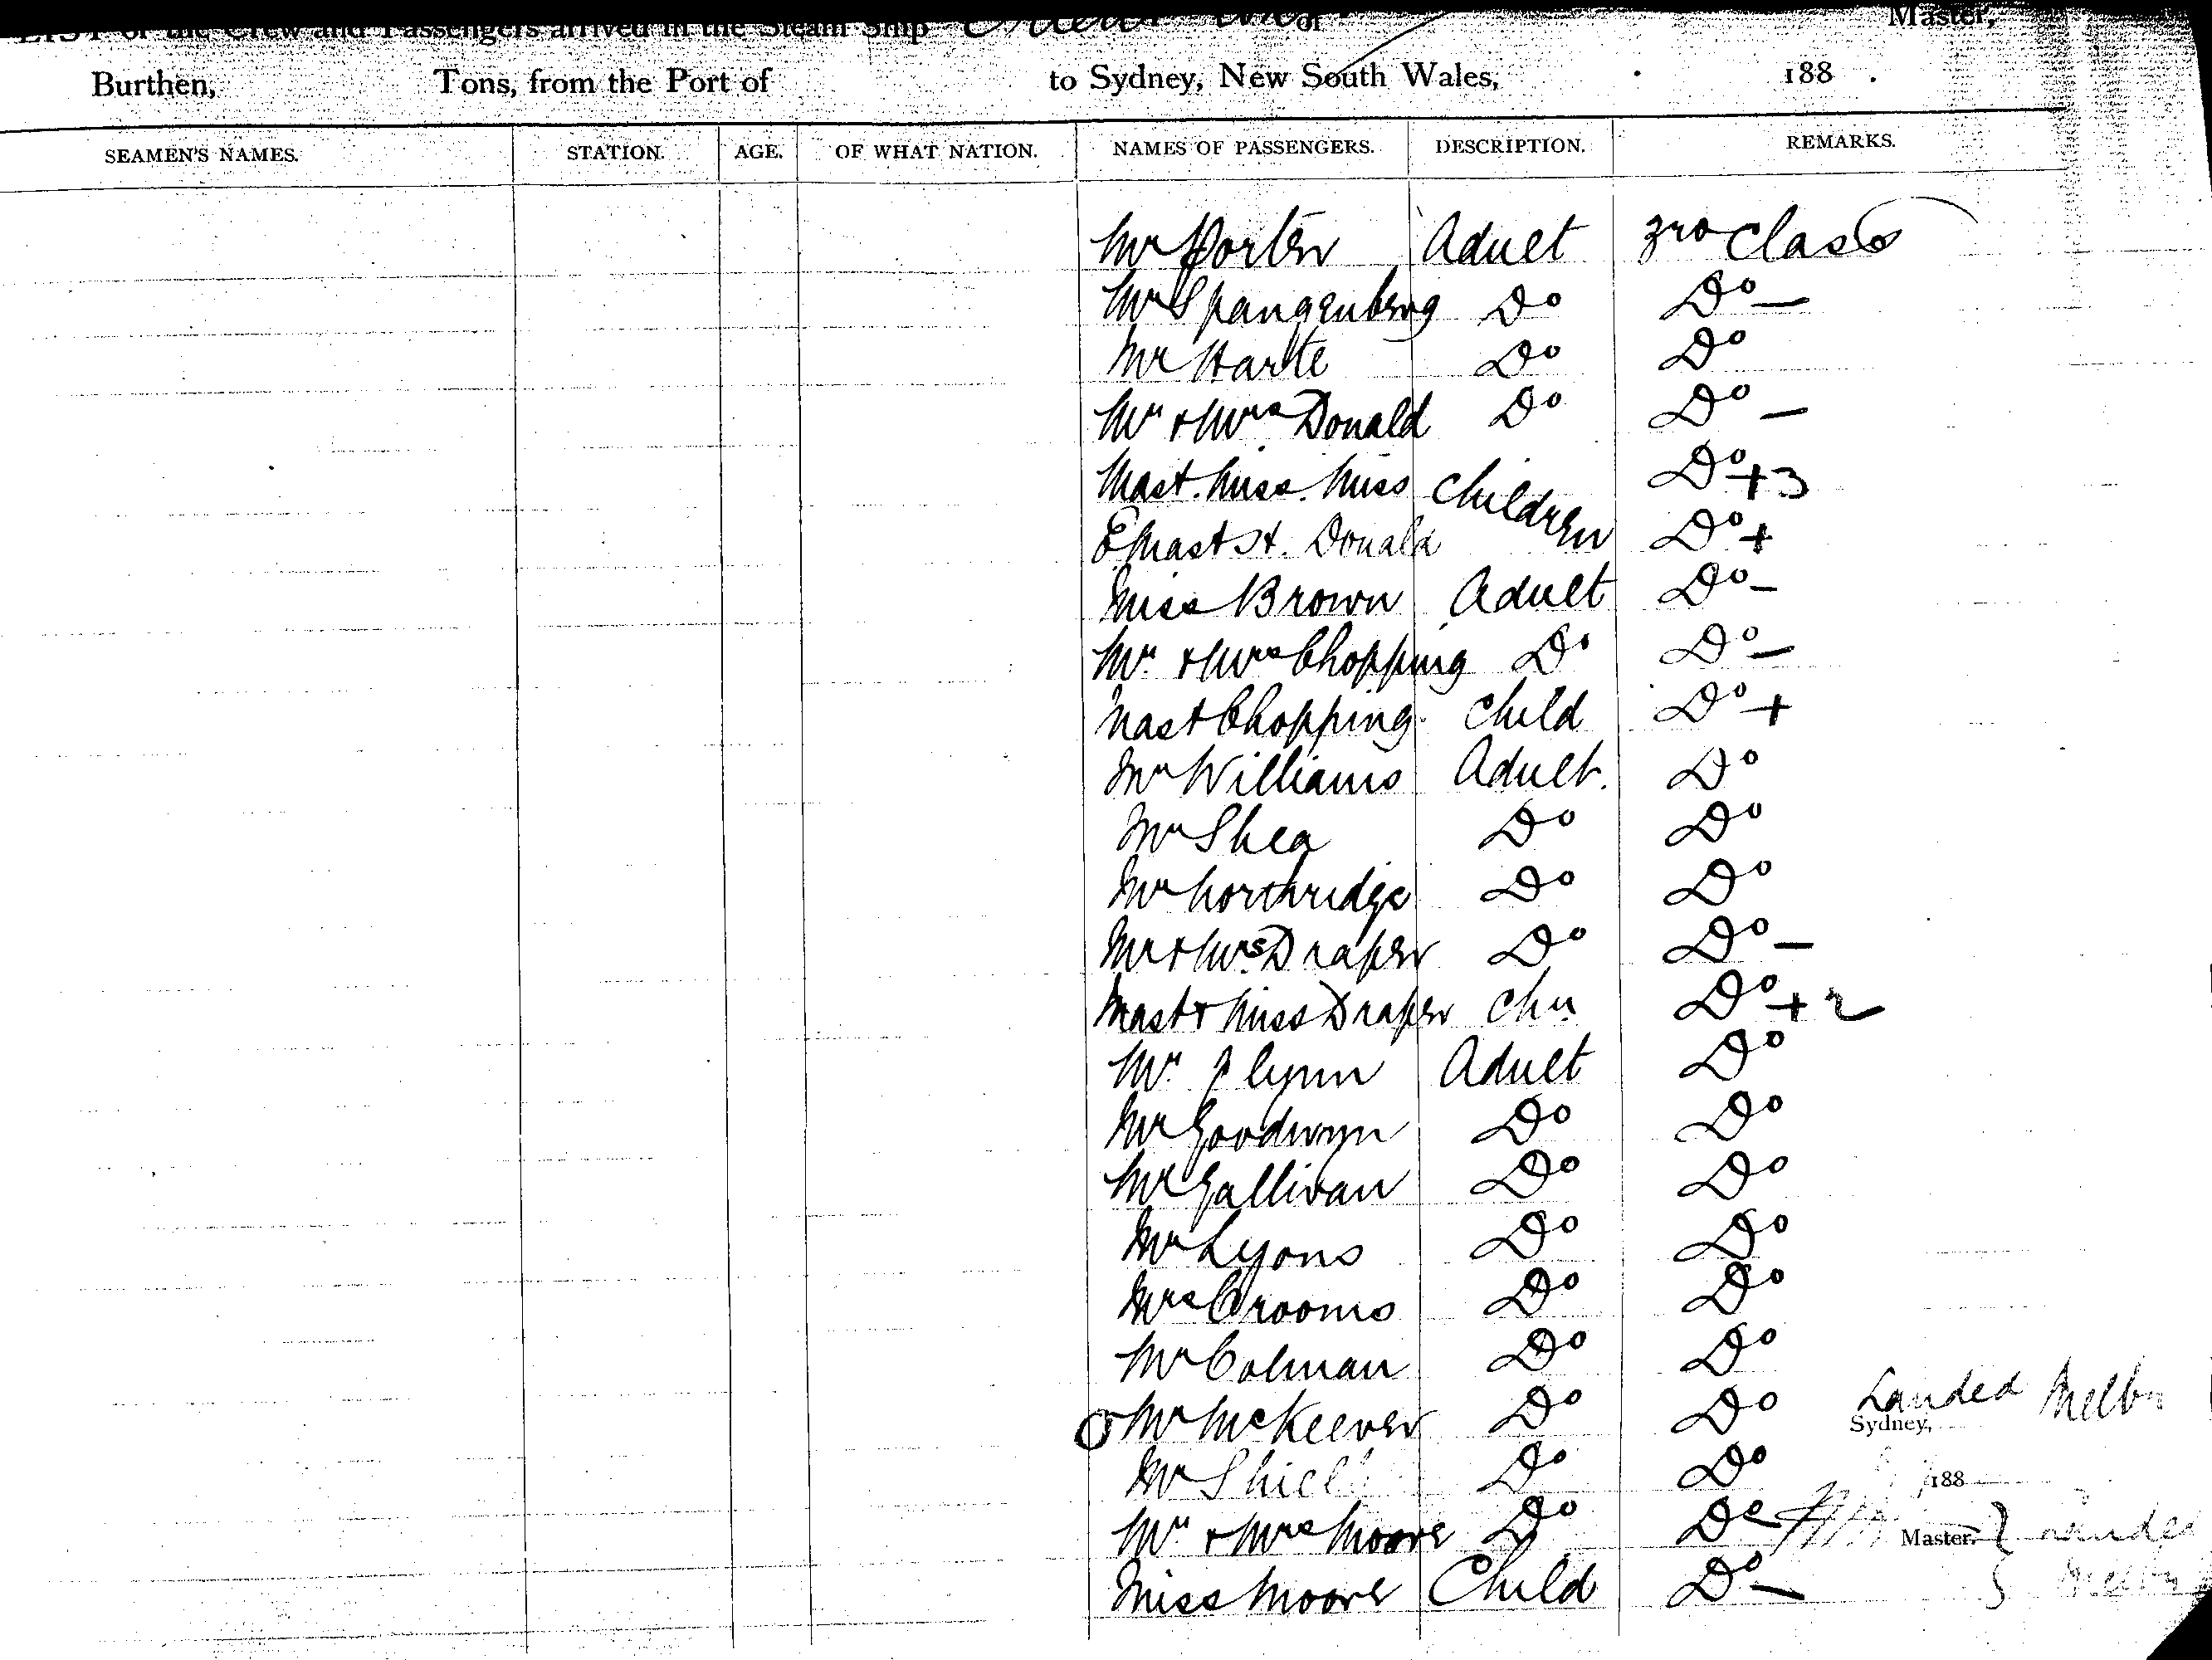 LIST of the Crew and Passengers arrived in the Steam Ship of Master,
Burthen, Tons, from the Port of to Sydney, New South Wales, 188 .
SEAMEN'S NAMES. STATION. AGE. OF WHAT NATION. NAMES OF PASSENGERS. DESCRIPTION. REMARKS.
Mr Porter Adult 3rd Class
Mr Spangenberg Do Do —
Mr Harte Do Do
Mr + Mrs Donald Do Do —
Mast. Miss. Miss Children Do + 3
& Mast St. Donald Do +
Miss Brown Adult Do -
Mr + Mrs Chopping Do Do —
Mast Chopping Child Do +
Mr Williams Adult. Do
Mr Shea Do Do
Mr Northridge Do Do
Mr + Mrs Draper Do Do —
Mast + Miss Draper Chn Do + 2
Mr Flynn Adult Do
Mr Goodwyn Do Do
Mr Gallivan Do Do
Mr Lyons Do Do
Mrs Crooms Do Do
Mr Colman Do Do
Mr McKeever Do Do Landed Melbn
Sydney,
Mr Shiel Do Do 188
Mr + Mrs Moore Do Do Master. } Landed
Miss Moore Child Do — } Melbn